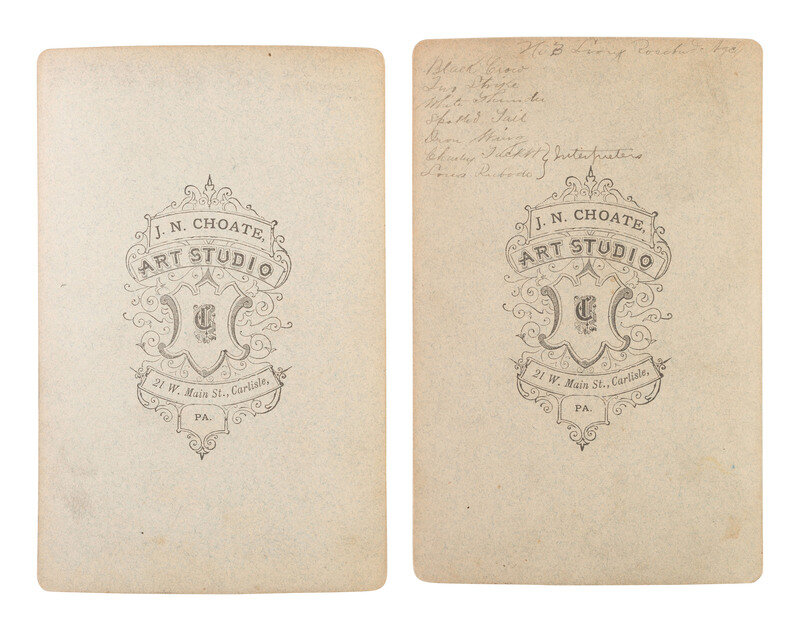 J. N. CHOATE,
ART STUDIO
C
21 W. Main St., Carlisle,
PA.
Black Crow
Two Strike
White Thunder
Spotted Tail
Iron Wing
Charles Tackett } Interpreters
Louis
J. N. CHOATE,
ART STUDIO
C
21 W. Main St., Carlisle,
PA.